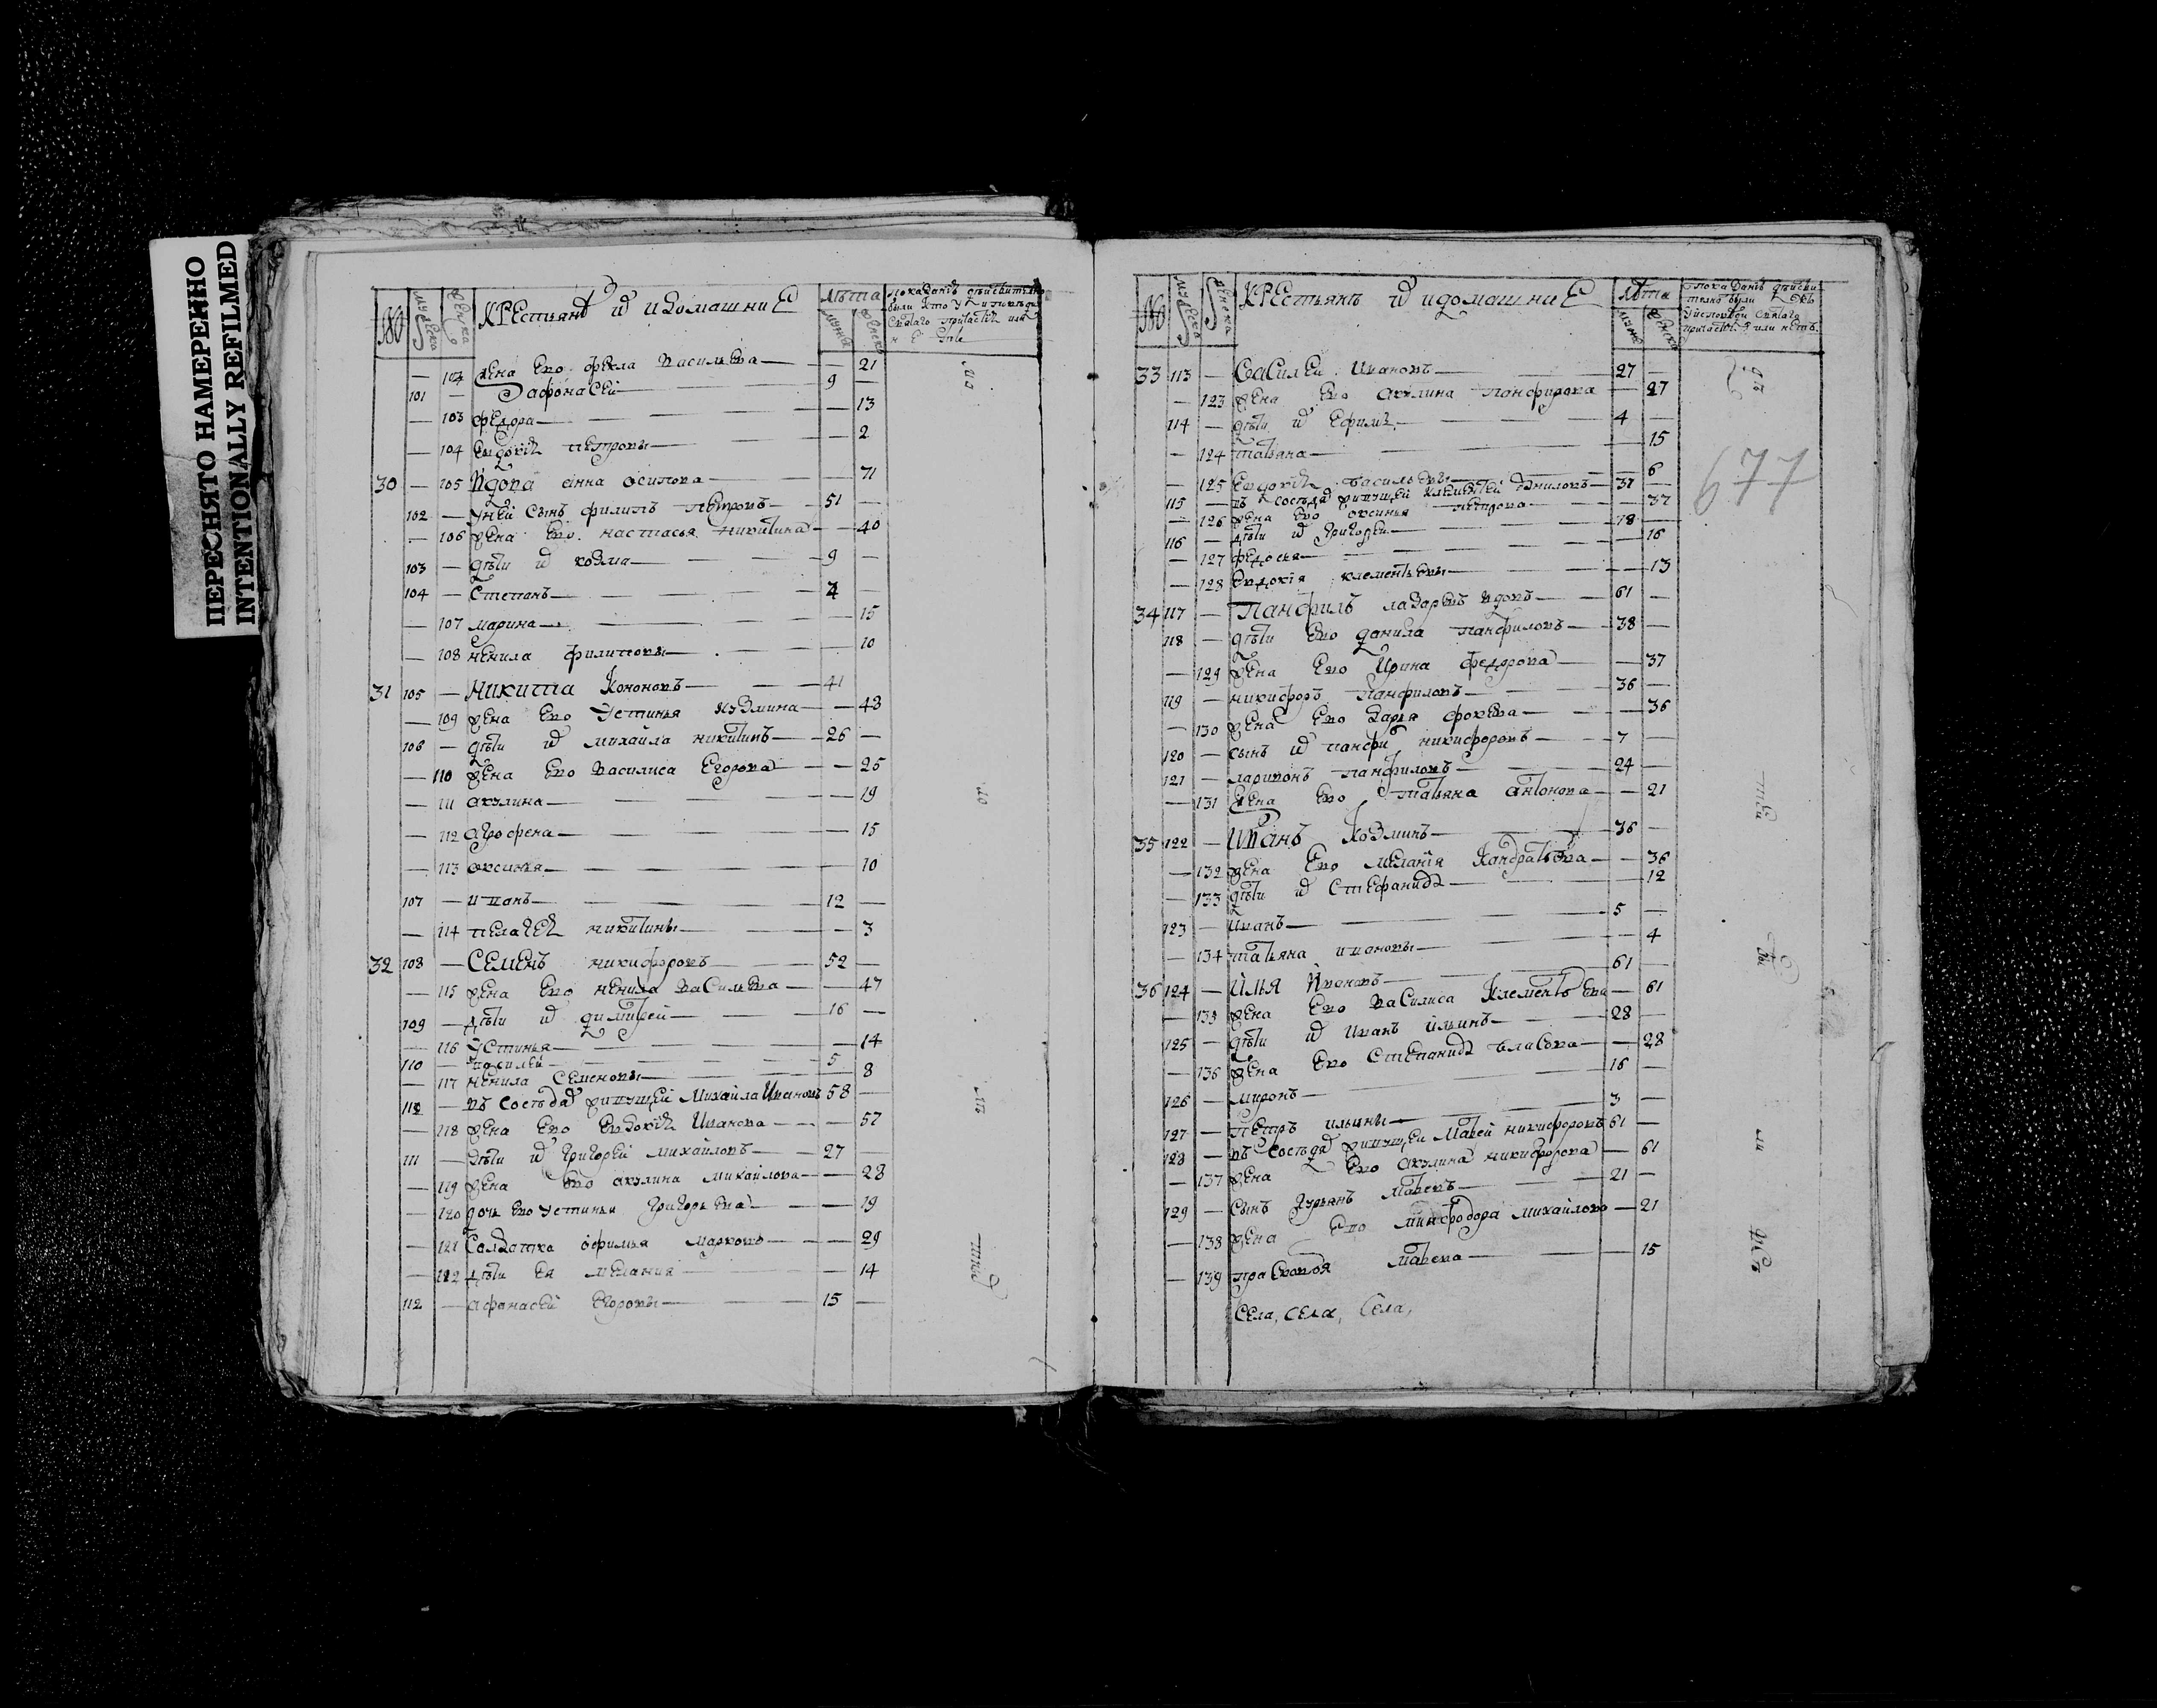 ПЕРЕСНЯТО НАМЕРЕННО
INTENTIONALLY REFILMED
№ мужеска женска КРЕстьянѣ их и домашниЕ лѣта
— 102 жена Ево фекла василЕва — — 21
101 — афонаСЕй — 9 —
— 103 фЕдора — — 13
— 104 Евдокия пЕтровы — — 2
30 — 105 вдова анна осипова — — 71
102 — у нЕй Сынъ филипъ пЕтровъ — 51 —
— 106 жЕна Ево настасья никитина — — 40
103 — дѣти их козма — 9 —
104 — Степанъ — 4 —
— 107 марина — — 15
— 108 нЕнила филиповы — — 10
31 105 — Никита Кононовъ — 41
— 109 жЕна Ево Устинья кузмина — — 43
106 — дѣти их михайла никитинъ — 26 —
— 110 жЕна Ево василиса Егорова — — 25
— 111 акулина — — 19
— 112 агрофена — — 15
— 113 оксинья — — 10
107 — иванъ — 12 —
— 114 пЕлагЕя никитины — — 3
32 108 — СЕмЕнъ никифоровъ — 52 —
— 115 жЕна Ево нЕнила васильЕва — — 47
109 — дѣти их димитрЕй — 16 —
— 116 Устинья — — 14
110 — василЕй — 5
— 117 нЕнила СЕмЕновы — 8
— въ Сосѣдах живущЕй Михайла Ивановъ 58 —
— 118 жЕна Ево Евдокия Иванова — — 57
111 — дѣти их григорЕй михайловъ — 27 —
— 119 жЕна Ево акулина михайлова — — 28
— 120 дочь Ево устинья григорьЕва — — 19
— 121 Салдатка офимья марковъ — — 29
— 122 дѣти Ея мЕлания — — 14
112 — афанасЕй Егоровы — 15 —
№ мужеска женска КРЕстьянъ их и домашниЕ лѣта
33 113 — ВаСилЕй Ивановъ — 27 —
— 123 жена Ево акулина панфирова — 27
114 — дѣти их Ефимъ — 4 —
— 124 татьяна — — 15
— 125 Евдокия васильЕвы — — 6
115 — въ сосѣдах живущЕй КлЕмЕнтЕй даниловъ — 37 —
— 126 жЕна Ево оксинья пЕтрова — — 37
116 — дѣти их григорЕй — 18 —
— 127 фЕдосья — — 16
— 128 Евдокия клемЕнтьЕвы — — 13
34 117 — Панфилъ лазарЕвъ вдовъ — 61 —
118 — дѣти Ево данила панфиловъ — 38 —
— 129 жЕна Ево Ирина федорова — 37
119 — никифоръ Панфиловъ — 36 —
— 130 жЕна Ево дарья фокЕва — — 36
120 — сынъ их панфи никифоровъ — 7 —
121 — ларивонъ панфиловъ — 24 —
— 131 жЕна Ево татьяна антонова — — 21
35 122 — Иванъ Козминъ — 36 —
— 132 жЕна Ево мЕлания Кондратьева — — 36
— 133 дѣти их СтЕфанида — — 12
123 — Иванъ — 5 —
— 134 татьяна ивановы — — 4
36 124 — Илья Ивановъ — 61 —
— 135 жЕна Ево ваСилиса КлемЕнтьЕва — 61
125 — дѣти их Иванъ ильинъ — 28 —
— 136 жЕна Ево СтЕпанида власова — — 28
126 — миронъ — 16 —
127 — ПЕтръ ильины — 3 —
128 — въ Сосѣдах живущЕй МатвЕй никифоровъ 61 —
— 137 жЕна Ево акулина никифорова — 61
129 — Сынъ гурьянъ матвЕЕвъ — 21 —
— 138 жЕна Ево минфодора михайлова — 21
— 139 праСковья матвЕЕва — — 15
СЕла, СЕла, СЕла,
677